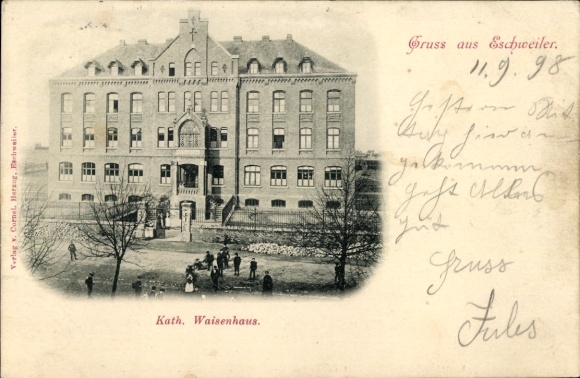 Gruss aus Eschweiler.
11.9.98
Gestern Mit
tag hier an
gekommen
geht Alles
gut
Gruss
Jules
Kath. Waisenhaus.
Verlag v. Cornel. Herzog, Eschweiler.